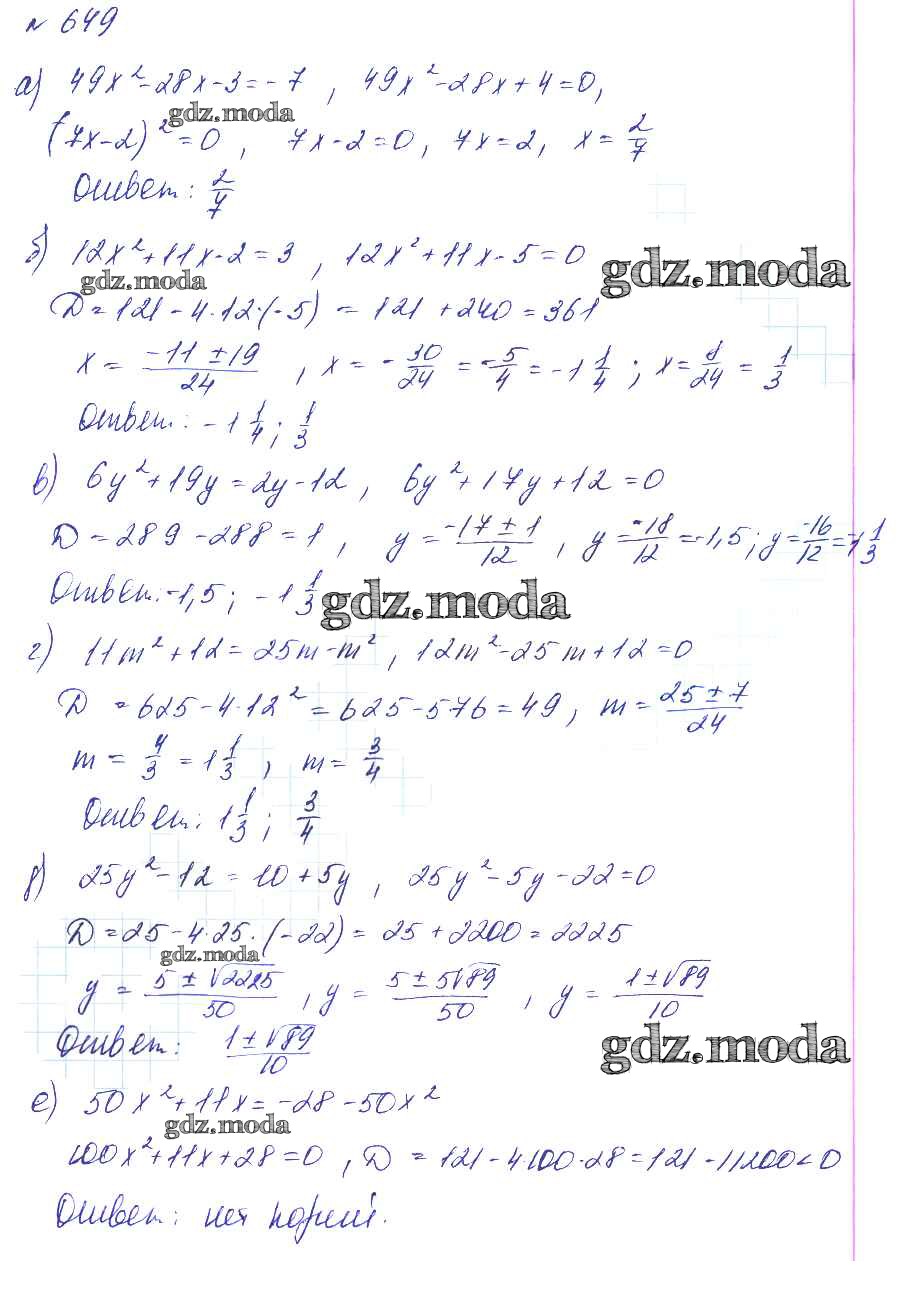 № 649
а) 49x² - 28x - 3 = -7 , 49x² - 28x + 4 = 0,
gdz.moda
(7x-2)² = 0 , 7x - 2 = 0, 7x = 2, x = 2/7
Ответ: 2/7
б) 12x² + 11x - 2 = 3 , 12x² + 11x - 5 = 0
gdz.moda
gdz.moda
D = 121 - 4·12·(-5) = 121 + 240 = 361
x = (-11 ± 19)/24 , x = -30/24 = -5/4 = -1 1/4 ; x = 8/24 = 1/3
Ответ: -1 1/4 ; 1/3
в) 6y² + 19y = 2y - 12 , 6y² + 17y + 12 = 0
D = 289 - 288 = 1 , y = (-17 ± 1)/12 , y = -18/12 = -1,5 ; y = -16/12 = -1 1/3
Ответ: -1,5 ; -1 1/3
gdz.moda
г) 11m² + 12 = 25m - m² , 12m² - 25m + 12 = 0
D = 625 - 4·12² = 625 - 576 = 49 , m = (25 ± 7)/24
m = 4/3 = 1 1/3 , m = 3/4
Ответ: 1 1/3 ; 3/4
д) 25y² - 12 = 10 + 5y , 25y² - 5y - 22 = 0
D = 25 - 4·25·(-22) = 25 + 2200 = 2225
gdz.moda
y = (5 ± √2225)/50 , y = (5 ± 5√89)/50 , y = (1 ± √89)/10
Ответ: (1 ± √89)/10
gdz.moda
е) 50x² + 11x = -28 - 50x²
gdz.moda
100x² + 11x + 28 = 0 , D = 121 - 4·100·28 = 121 - 11200 < 0
Ответ: нет корней.